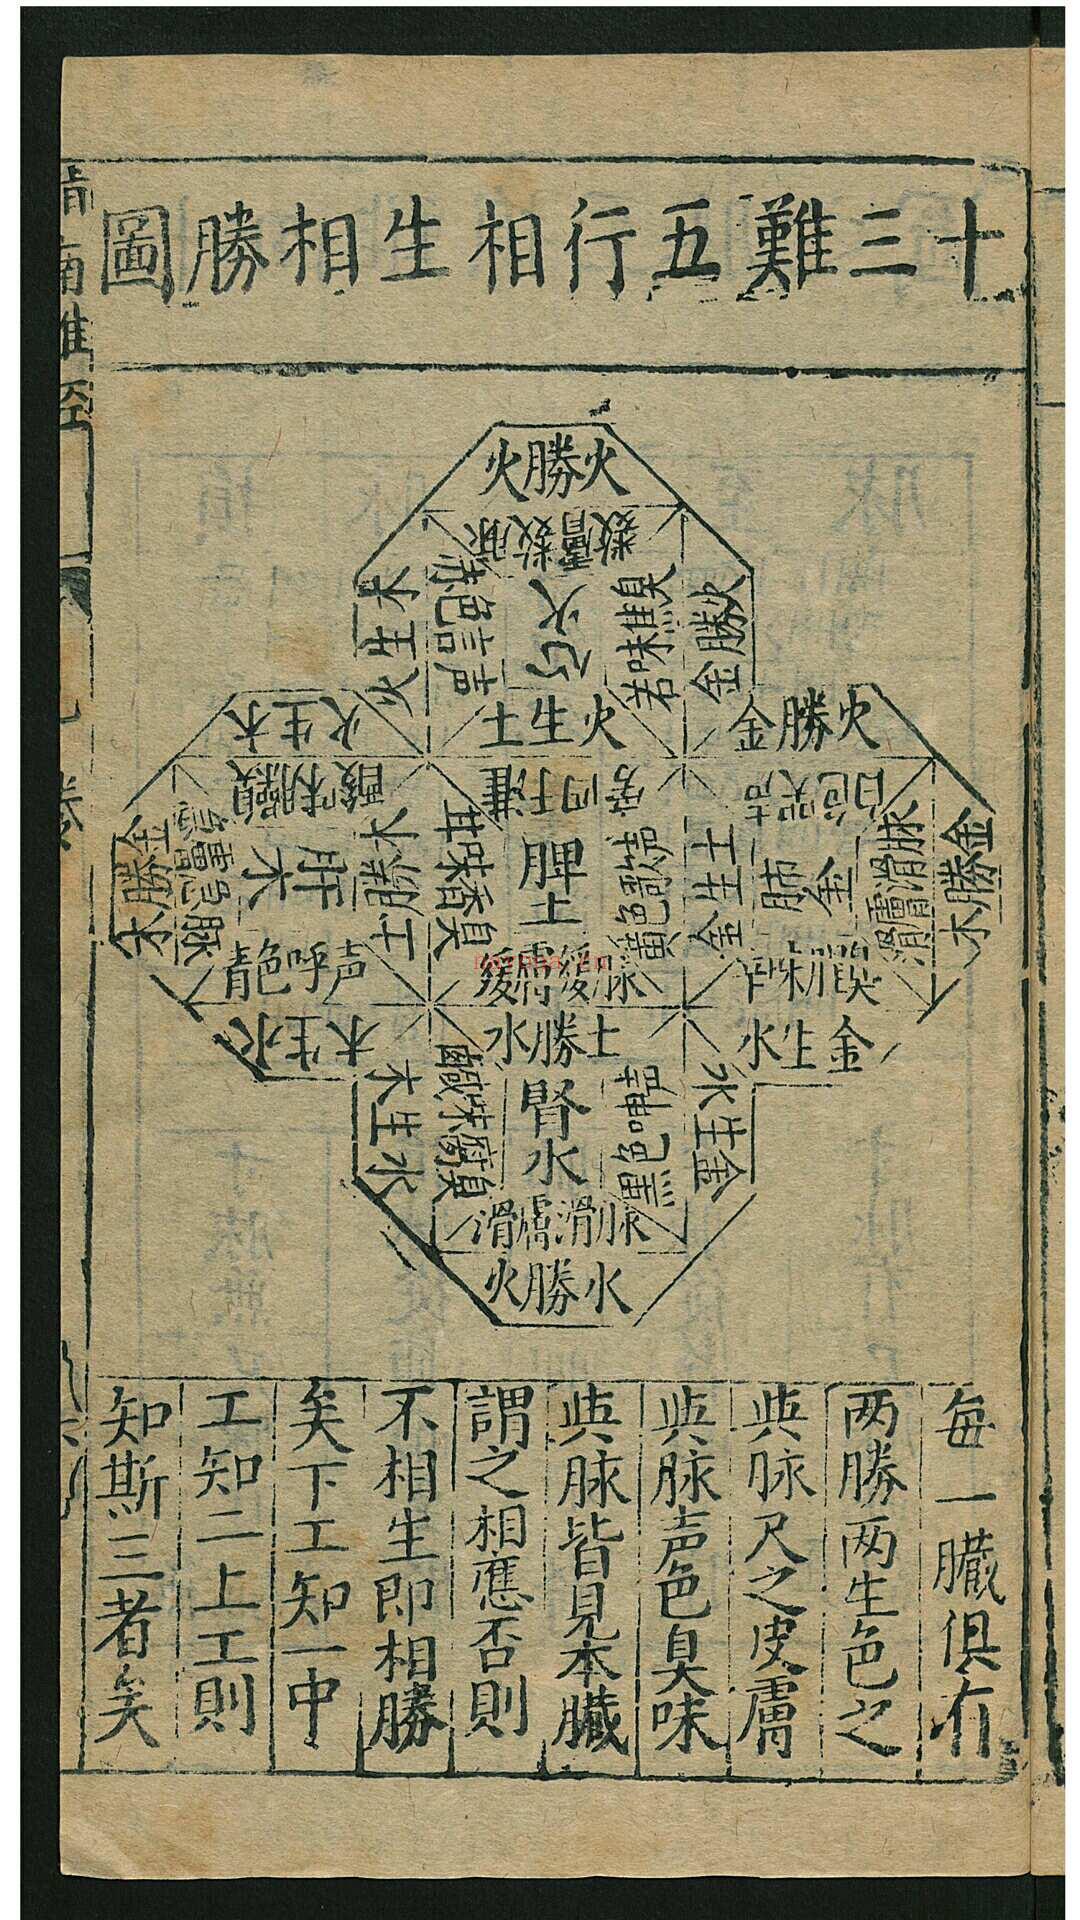 十三難五行相生相勝圖
火勝火
數膚數脉
赤色言声
心火
苦味焦臭
木生火
火勝金
火生土
火勝金
木生火
酸味臊臭
急膚急脉
肝木
木勝土
青色呼声
金勝木
水生木
甘味香臭
脾土
黄色歌
緩膚緩脉
土生金
白色哭声
肺金
辛味腥臭
金勝木
金生水
土勝水
水生木
腎水
黒色呻声
金生水
滑膚滑脉
水勝火
每一臓俱有
两勝两生色之
與脉尺之皮膚
與脉声色臭味
與脉皆見本臓
謂之相應否則
不相生即相勝
矣下工知一中
工知二上工則
知斯三者矣